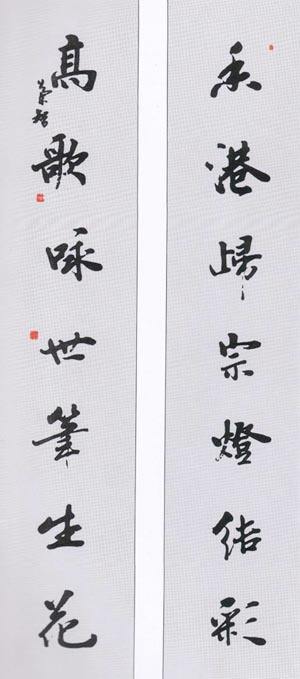 香港歸宗燈結彩
高歌咏世筆生花